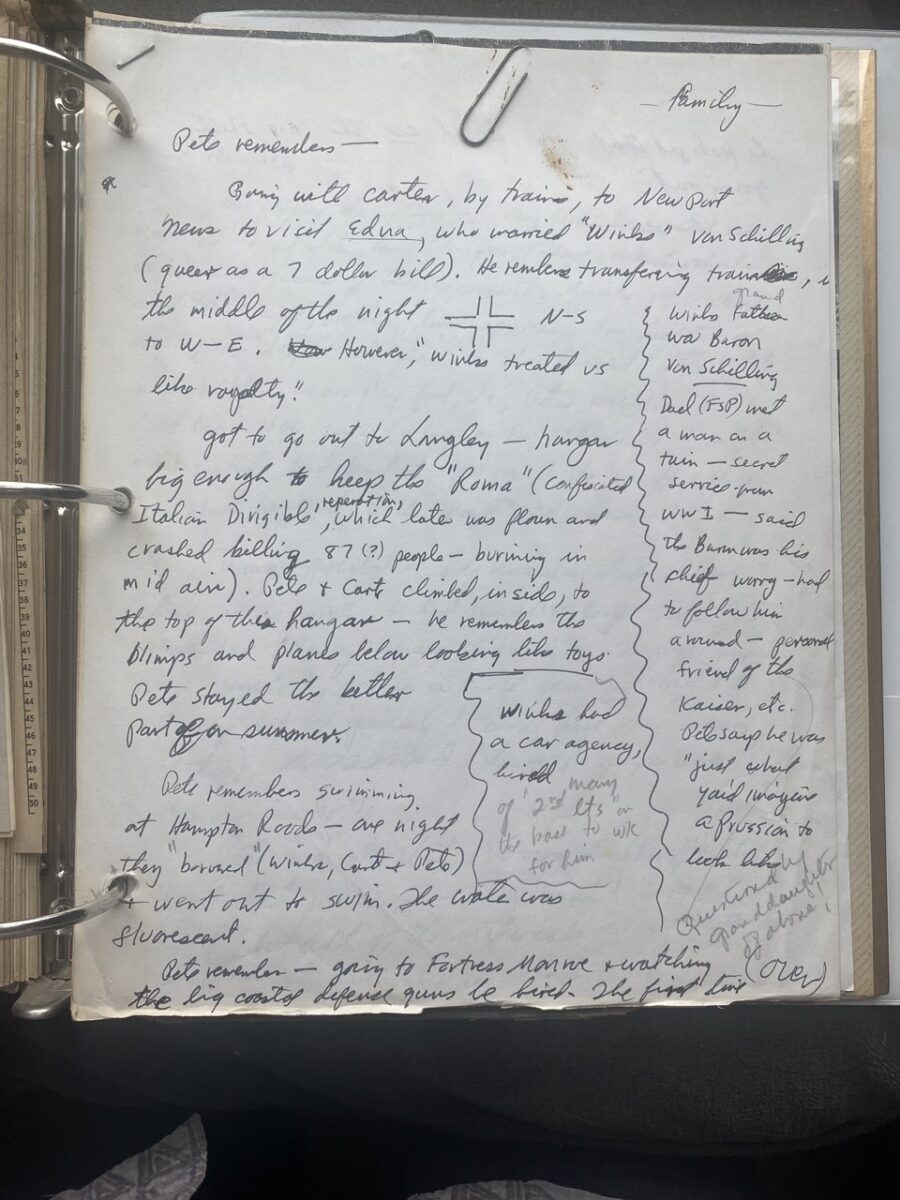 — Family —
Pete remembers —
Going with Carter, by train, to New Port
News to visit Edna, who married "Winks" von Schilling
(queer as a 7 dollar bill). He rembers transfering trains, i
the middle of the night N-S
to W—E. However, "Winks treated us
like royalty."
got to go out to Langley — hangar
big enough to keep the "Roma" (confiscated
Italian Dirigible, "reperation", which later was flown and
crashed killing 87 (?) people — burining in
mid air). Pete & Cart climbed, inside, to
the top of the hangar — he remembers the
blimps and planes below looking like toys.
Pete stayed the better
part of on summer.
Pete remembers swimming
at Hampton Roads — one night
they "borowed" (Winks, Cart & Pete)
+ went out to swim. The water was
fluorescent.
Pete remember — going to Fortress Monroe & watching
the big coastal defense guns be fired. The first time
(over)
Winks grand Father
was Baron
von Schilling
Dad (FSP) met
a man on a
train — secret
service man
WWI — said
the Baron was his
chief worry — had
to follow him
around — personal
friend of the
Kaiser, etc.
Pete says he was
"just what
you'd imagine
a Prussion to
look like
Questioned by
granddaughter
of above!
Winks had
a car agency,
hired many
of "2nd Lts" on
the base to wk
for him
34
35
36
37
38
39
40
41
42
43
44
45
46
47
48
49
50